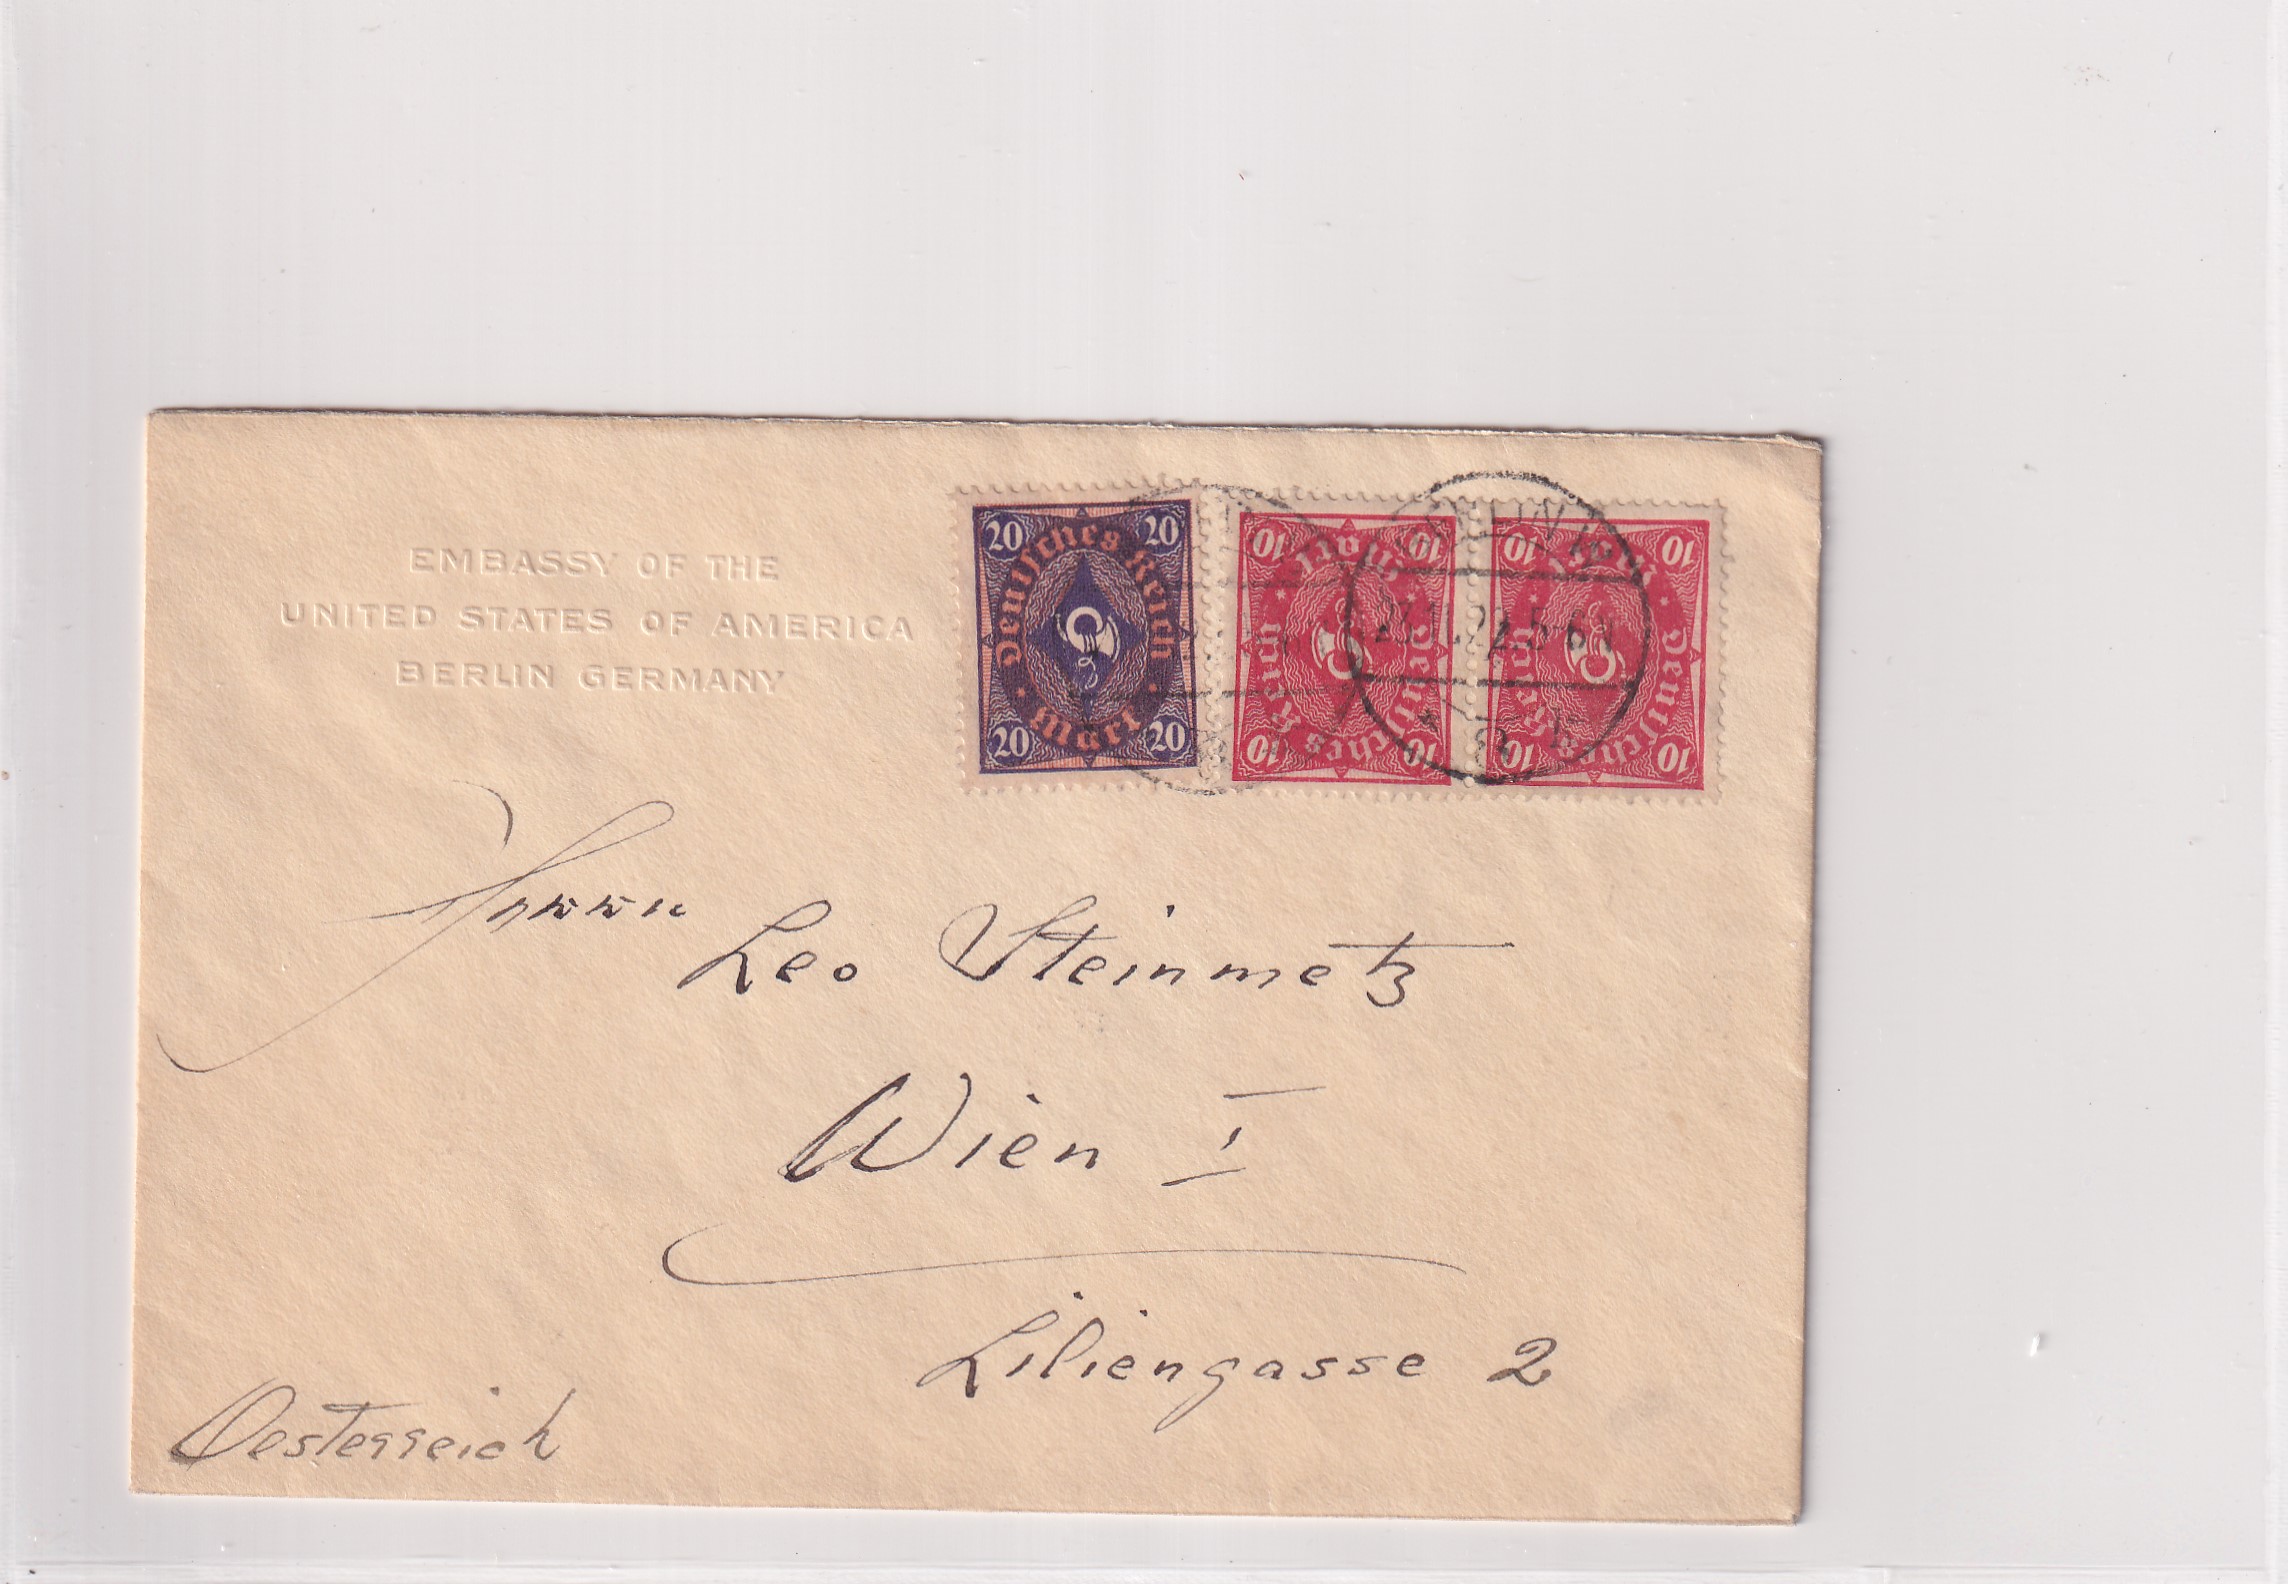 EMBASSY OF THE
UNITED STATES OF AMERICA
BERLIN GERMANY
20 20
Deutsches Reich
Mark
20 20
10 10
Deutsches Reich
Mark
10 10
10 10
Deutsches Reich
Mark
10 10
BERLIN W
23.11.22.5-6N
Herrn
Leo Steinmetz
Wien I
Liliengasse 2
Oesterreich